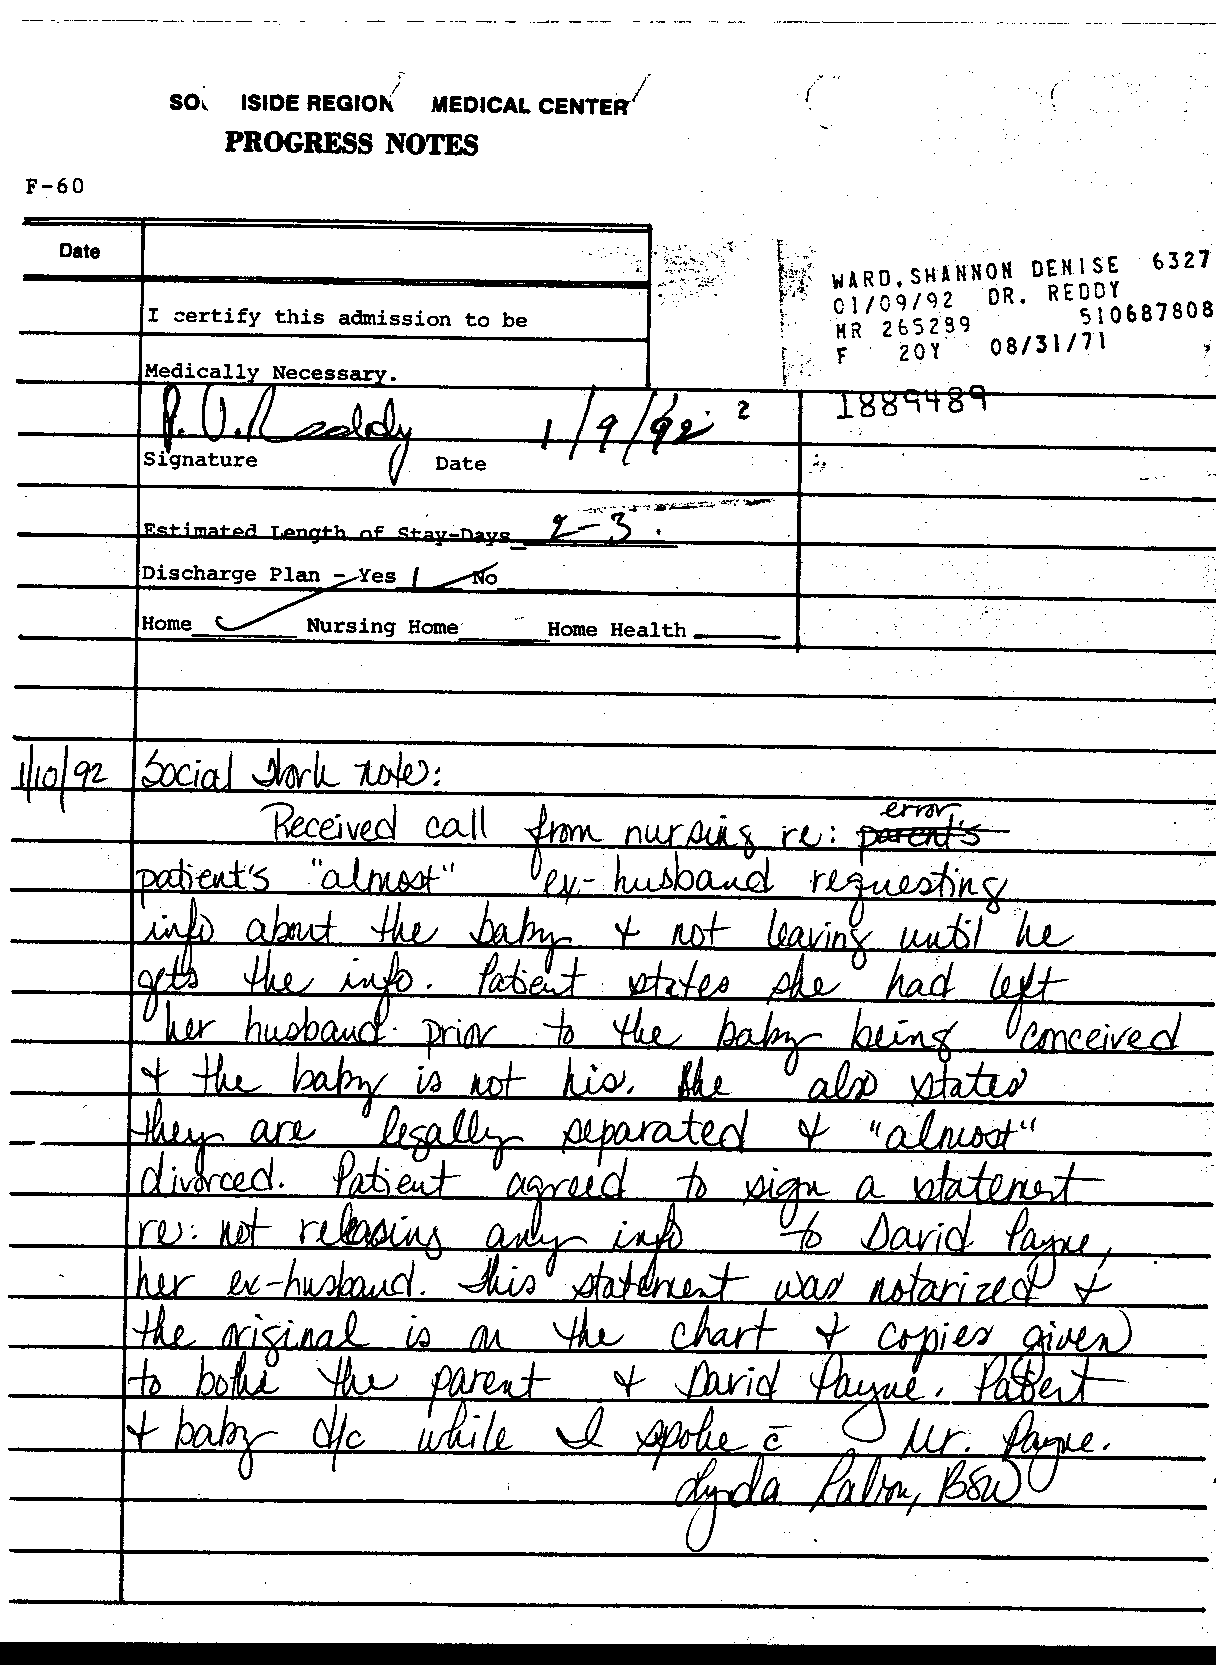 SO ISIDE REGION MEDICAL CENTER
PROGRESS NOTES
F-60
Date
WARD, SHANNON DENISE 6327
01/09/92 DR. REDDY
MR 265289 510687808
F 20Y 08/31/71
1889489
I certify this admission to be
Medically Necessary.
P. V. Reddy 1/9/92
Signature Date
Estimated Length of Stay-Days 2-3.
Discharge Plan - Yes No
Home Nursing Home Home Health
1/10/92 Social Work note:
error
Received call from nursing re: parent's
patient's "almost" ex-husband requesting
info about the baby & not leaving until he
gets the info. Patient states she had left
her husband prior to the baby being conceived
& the baby is not his. She also states
they are legally separated & "almost"
divorced. Patient agreed to sign a statement
re: not releasing any info to David Payne,
her ex-husband. This statement was notarized &
the original is on the chart & copies given
to both the parent & David Payne. Patient
& baby d/c while I spoke c̄ Mr. Payne.
Lynda BSW